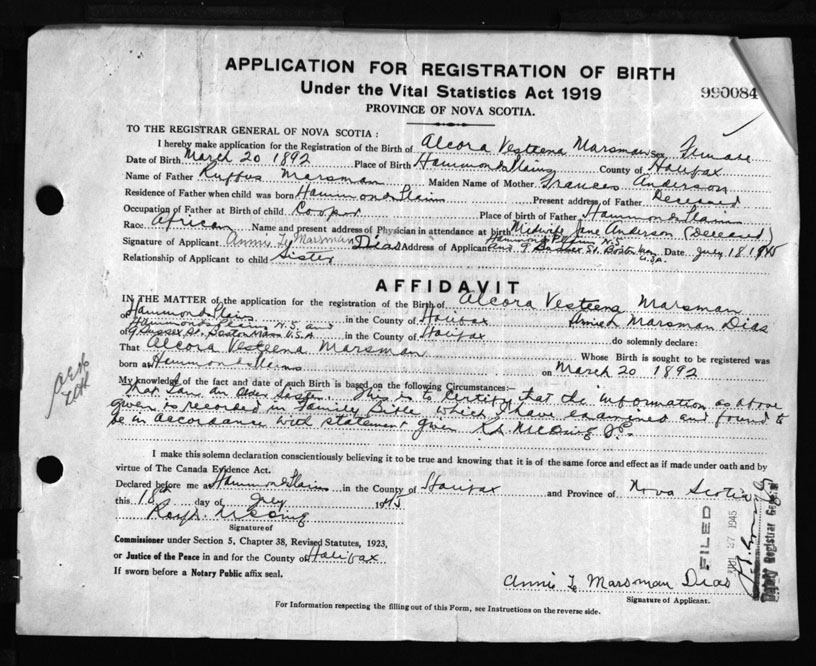 APPLICATION FOR REGISTRATION OF BIRTH
Under the Vital Statistics Act 1919
PROVINCE OF NOVA SCOTIA.
990084
TO THE REGISTRAR GENERAL OF NOVA SCOTIA:
I hereby make application for the Registration of the Birth of Alcora Vesteena Marsman Sex Female
Date of Birth March 20 1892 Place of Birth Hammonds Plains County of Halifax
Name of Father Ruffus Marsman Maiden Name of Mother Frances Anderson
Residence of Father when child was born Hammonds Plains Present address of Father Deceased
Occupation of Father at Birth of child Cooper Place of Birth of Father Hammonds Plains
Race African Name and present address of Physician in attendance at birth Midwife Jane Anderson (Deceased)
Signature of Applicant Annie L Marsman Dias Address of Applicant Hammonds Plains N.S. and 9 Sussex St. Boston Mass U.S.A. Date July 18 1945
Relationship of Applicant to child Sister
AFFIDAVIT
IN THE MATTER of the application for the registration of the Birth of Alcora Vesteena Marsman
of Hammonds Plains in the County of Halifax Marsman Dias
of Hammonds Plains N.S. and 9 Sussex St. Boston Mass U.S.A. in the County of Halifax do solemnly declare:
That Alcora Vesteena Marsman Whose Birth is sought to be registered was
born at Hammonds Plains on March 20 1892
My knowledge of the fact and date of such Birth is based on the following Circumstances:—
that I am an older Sister. This is to certify that the information as above
given is recorded in Family Bible which I have examined and found to
be in accordance with statement given
I make this solemn declaration conscientiously believing it to be true and knowing that it is of the same force and effect as if made under oath and by
virtue of The Canada Evidence Act.
Declared before me at Hammonds Plains in the County of Halifax and Province of Nova Scotia
this 18th day of July 1945
Signature of
Commissioner under Section 5, Chapter 38, Revised Statutes, 1923,
or Justice of the Peace in and for the County of Halifax
If sworn before a Notary Public affix seal.
FILED
27 1945
Deputy Registrar General
Annie L Marsman Dias
Signature of Applicant.
For Information respecting the filling out of this Form, see Instructions on the reverse side.